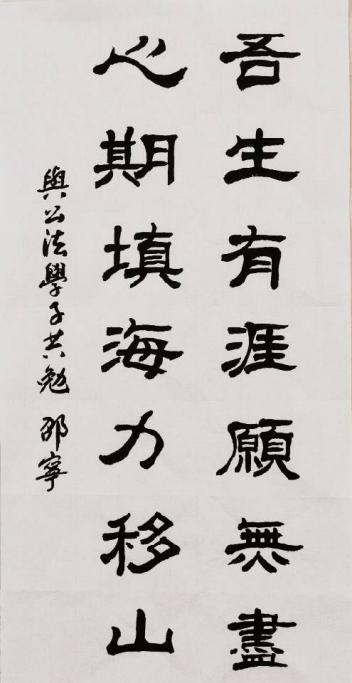 吾生有涯願無盡
心期填海力移山
與公法學子共勉 邵寧